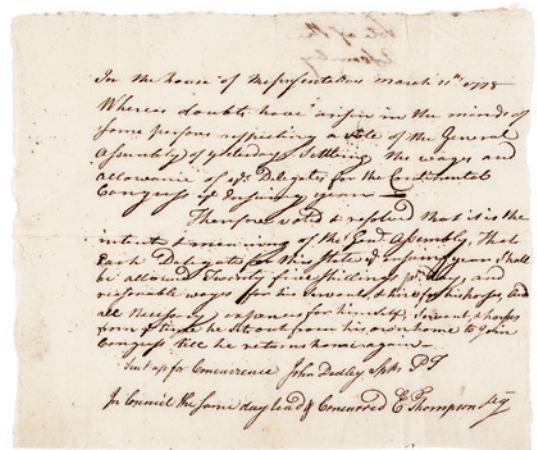 In the house of Representatives March 11th 1778
Whereas doubts have arisen in the minds of
some persons respecting a Vote of the General
Assembly of yesterday Settling the wages and
allowance of ye Delegates for the Continental
Congress ye Ensuing year
Therefore voted & resolved that it is the
intent & meaning of the Genl. Assembly, That
Each Delegate for this State ye ensuing year Shall
be allowed Twenty five shillings pr day, and
reasonable wages for his Servants & hire for his horses, and
all Necessary expenses for himself, Servant, & horses
from ye time he Sets out from his own home to Join
Congress till he returns home again —
Sent up for Concurrence John Dudley Spkr P T
In Council the same day read & Concurred E Thompson Secy